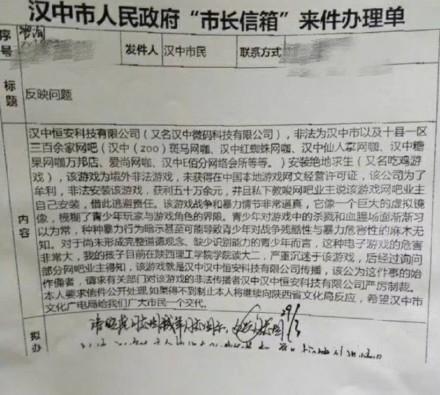 汉中市人民政府“市长信箱”来件办理单
序号
发件人
汉中市民
联系方式
标题
反映问题
内容
汉中恒安科技有限公司（又名汉中微码科技有限公司），非法为汉中市以及十县一区
三百余家网吧（汉中（zoo）斑马网咖、汉中红蜘蛛网咖、汉中仙人掌网咖、汉中糖
果网咖万邦店、爱尚网咖、汉中E佰分网络会所等等。）安装绝地求生（又名吃鸡游
戏），该游戏为境外非法游戏，未获得在中国本地游戏网文经营许可证，该公司为了
牟利，非法安装该游戏，获利五十万余元，并且私下教唆网吧业主说该游戏网吧业主
自己安装，借此逃避责任。该游戏战争和暴力情节非常逼真，它像一个巨大的虚拟镜
像，模糊了青少年玩家与游戏角色的界限。青少年对游戏中的杀戮和血腥场面渐渐习
以为常，种种暴力行为暗示甚至可能导致青少年对战争残酷性与暴力危害性的麻木无
知。对于尚未形成完整道德观念、缺少识别能力的青少年而言，这种电子游戏的危害
非常大，我的孩子目前在陕西理工学院学院读大二，严重沉迷于该游戏，后经过询问
部分网吧业主得知，该游戏就是汉中汉中恒安科技有限公司传播，该公司为这件事的始
作俑者，请求有关部门对该游戏的非法传播者汉中汉中恒安科技有限公司严厉制裁。
本人要求信件公开处理,如果得不到制止本人将继续向陕西省文化局反应，希望汉中市
文化广电局给我们广大市民一个交代。
拟办